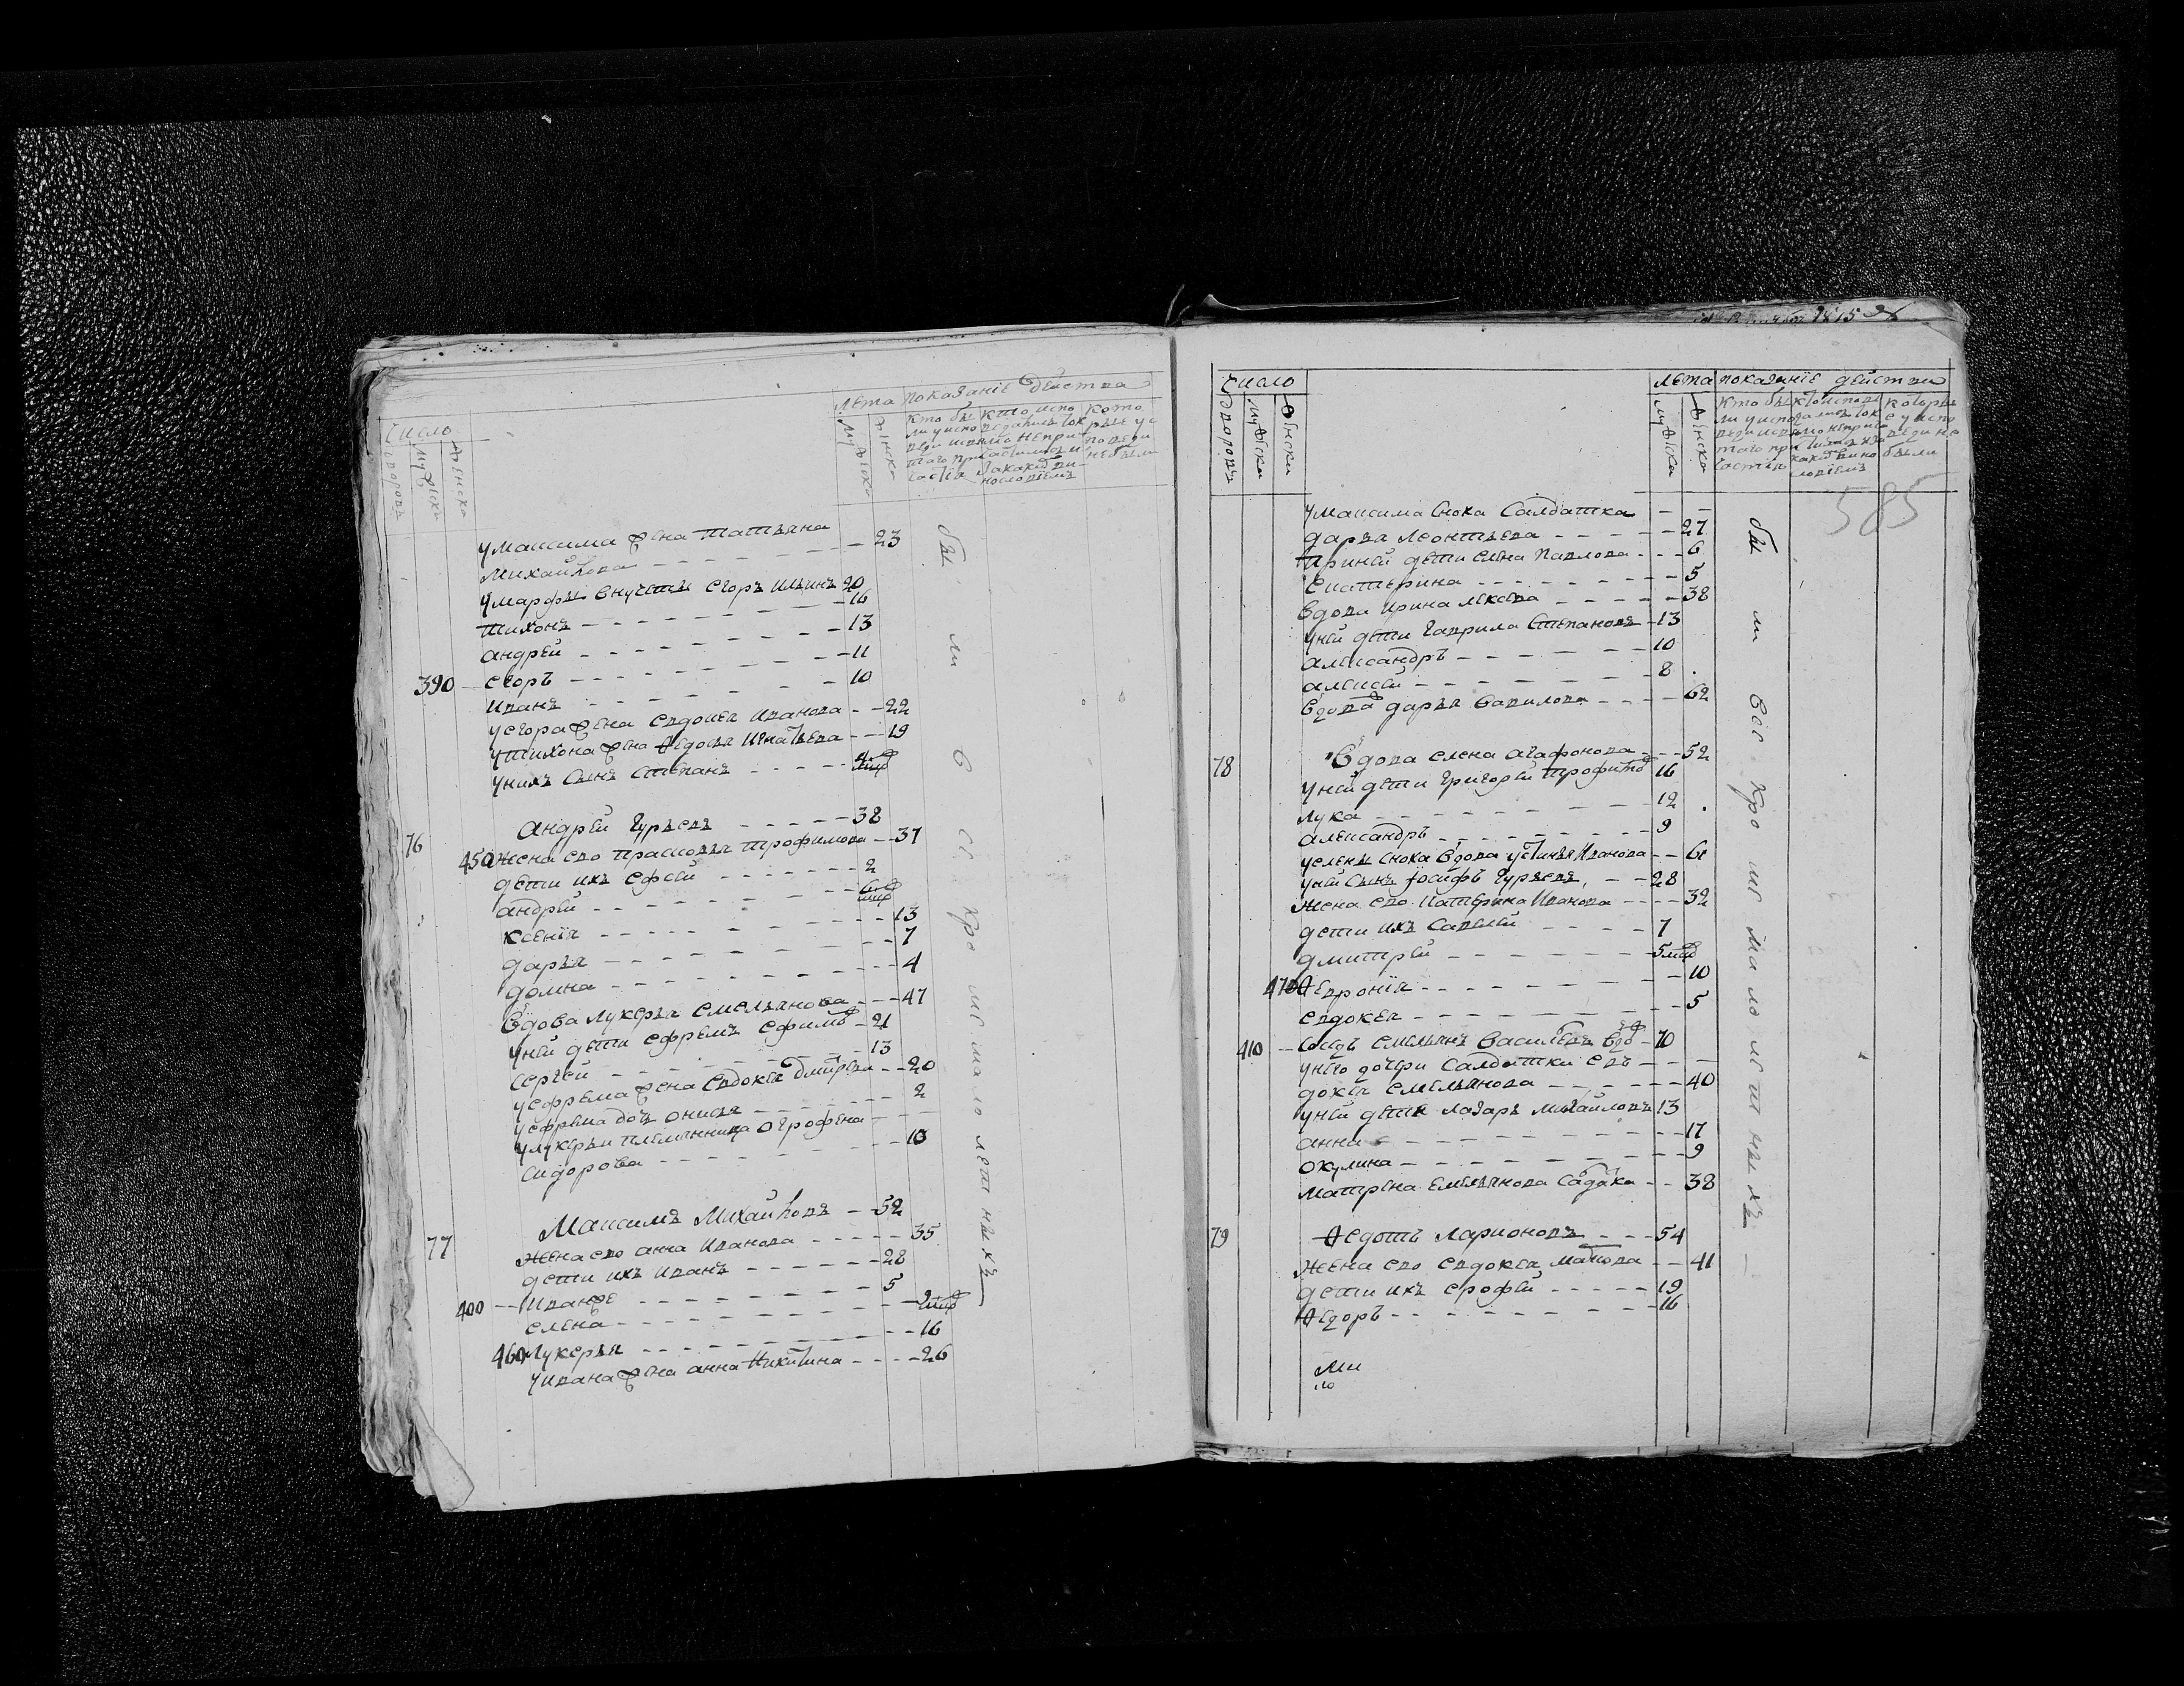 Число
дворовъ
мужеска
женска
лета
мужеска
женска
показание действа
Кто бы
ли у испо
Кто испо
ведались
кото
рые у ис
поведи
не были
У Максима жена Татьяна
Михайлова 23
У Марфы внучеты Егоръ Ильинъ 20
Тихонъ 16
Андрей 13
390 Егоръ 11
Иванъ 10
У Егора жена Евдокея Иванова 22
У Тихона жена Ѳедосья Игнатьева 19
У нихъ сынъ Степанъ
76 Андрей Гурьевъ 38
450 Жена ево Прасковья Трофимова 37
Дети ихъ Ефсей 2
Андрей
Ксения 13
Дарья 7
Домна 4
Вдова Лукерья Емельянова 47
У ней дети Ефремъ Ефимо 21
Сергей 13
У Ефрема жена Евдокея Дмитрева 20
У Ефрема доч Онисья 2
У Лукерьи племянница Огрофена
Сидорова 13
77 Максимъ Михайловъ 52
Жена ево Анна Иванова 35
Дети ихъ Иванъ 28
400 Иванже 5
Елена
460 Лукерья 16
У Ивана жена Анна Никитина 26
бы ли всe кроме малолетныхъ
1815
Число
дворовъ
мужеска
женска
лета
мужеска
женска
показание действи
585
У Максима сноха салдатка
Дарья Леонтьева 27
При ней дети Елена Павлова 6
Екатерина 5
Вдова Ирина Лексева 38
У ней дети Гаврила Степановъ 13
Александръ 10
Алексей 8
Вдова Дарья Вавилова 62
78 Вдова Елена Агафонова 52
У ней дети Григорей Трофимо 16
Лука 12
Александръ 9
У Елены сноха вдова Устинья Иванова
У ней сынъ Иосифъ Гурьевъ 28
Жена ево Катерина Иванова 32
Дети ихъ Савелей 7
Дмитрей
470 Ѳеврония 10
Евдокея 5
410 Соседъ Емельянъ Васильевъ вдо 70
У него дочери салдатки Ев
докея Емельянова 40
У ней дети Лазаръ Михайловъ 13
Анна 17
Окулина 9
Матрена Емельянова садатка 38
79 Ѳедотъ Ларионовъ 54
Жена ево Евдокея 41
Дети ихъ Ерофей 19
Ѳедоръ 16
Ми
ло
бы ли все кроме малолетныхъ